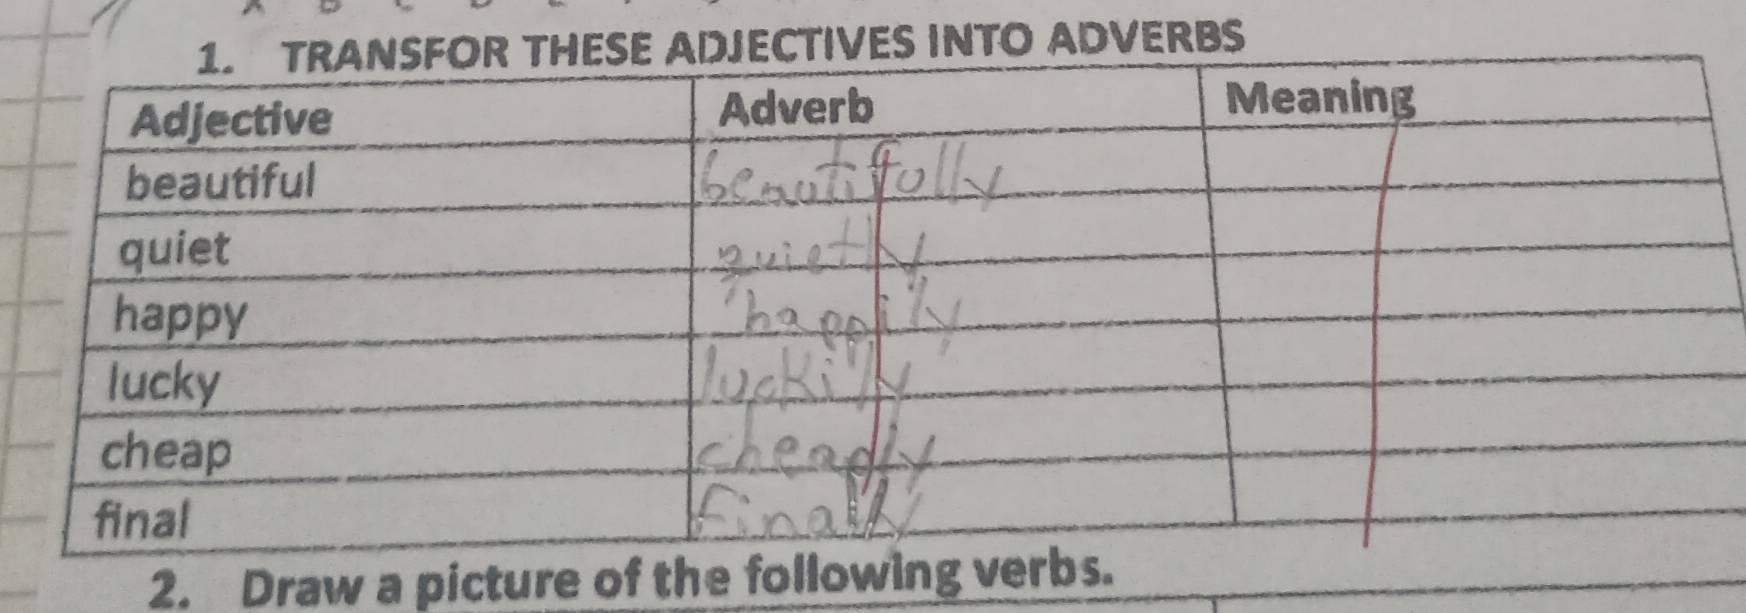 1. TRANSFOR THESE ADJECTIVES INTO ADVERBS
Adjective Adverb Meaning
beautiful beautifully
quiet quietly
happy happily
lucky luckily
cheap cheaply
final finally
2. Draw a picture of the following verbs.